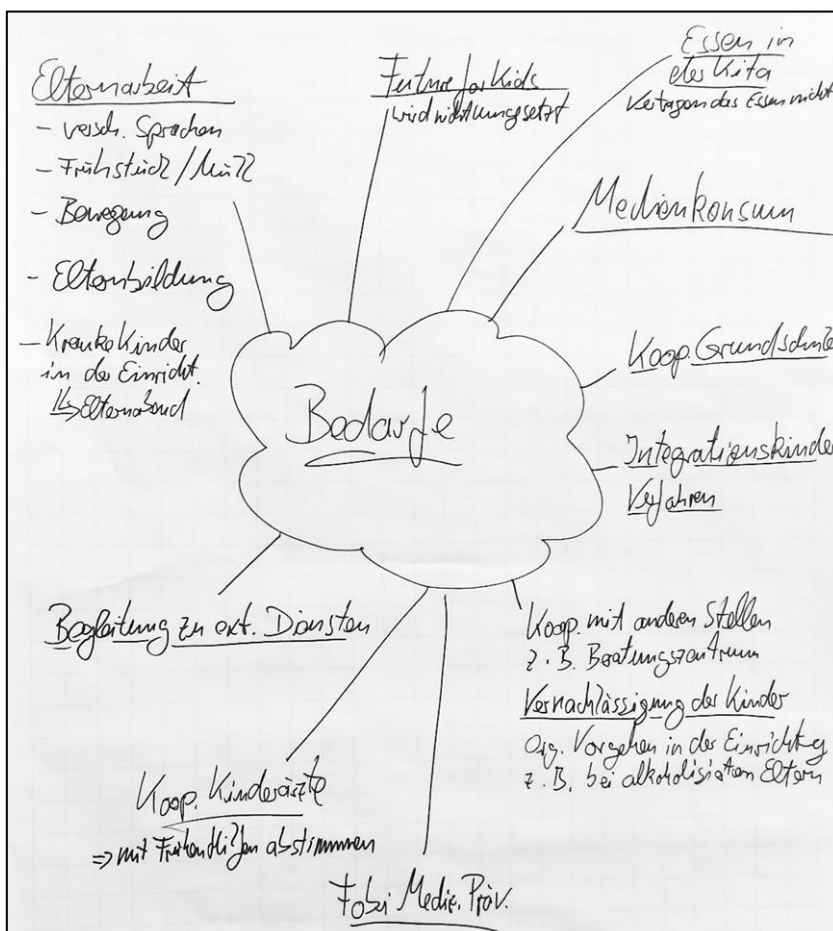 Elternarbeit
- versch. Sprachen
- Frühstück / Müll
- Bewegung
- Elternbildung
- Kranke Kinder
in der Einricht.
↳ Elternabend
Future for Kids
wird nicht umgesetzt
Essen in
der Kita
Vertragen das Essen nicht
Medienkonsum
Koop. Grundschule
Integrationskinder
Verfahren
Bedarfe
Begleitung zu ext. Diensten
Koop. mit anderen Stellen
z. B. Beratungszentrum
Vernachlässigung der Kinder
Org. Vorgehen in der Einrichtg
z. B. bei alkoholisierten Eltern
Koop. Kinderärzte
=> mit Frühen Hilfen abstimmen
Fobi Medie. Präv.